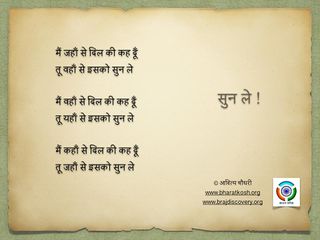 मैं जहाँ से बिल की कह दूँ
तू वहाँ से इसको सुन ले
मैं वहाँ से बिल की कह दूँ
तू यहाँ से इसको सुन ले
मैं कहाँ से बिल की कह दूँ
तू जहाँ से इसको सुन ले
सुन ले !
© आदित्य चौधरी
www.bharatkosh.org
www.brajdiscovery.org